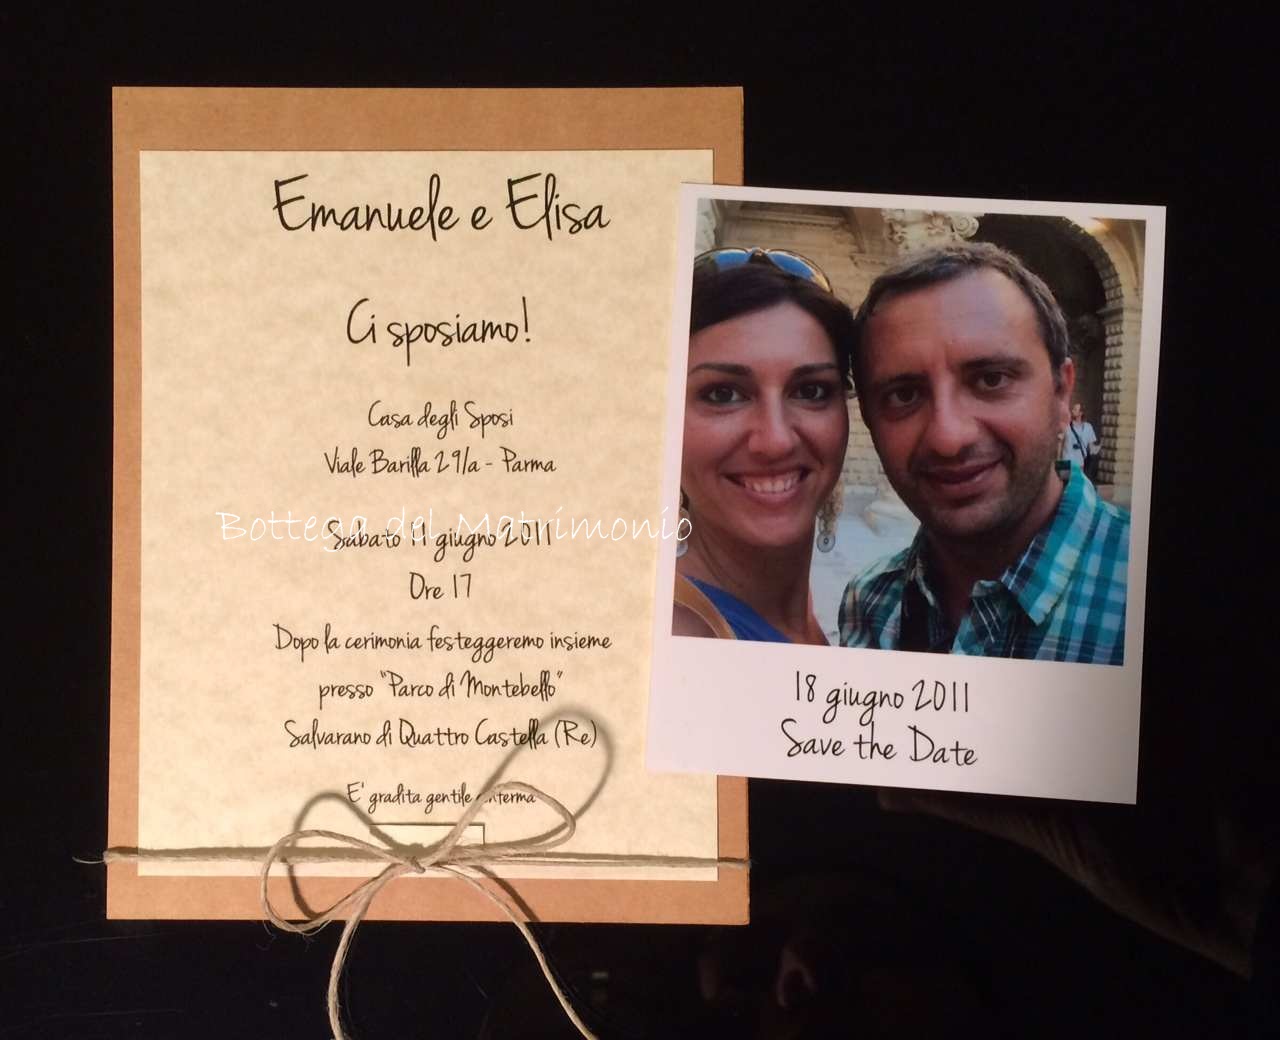 Emanuele e Elisa
Ci sposiamo!
Casa degli Sposi
Viale Barilla 29/a - Parma
Bottega del Matrimonio
Sabato 11 giugno 2011
Ore 17
Dopo la cerimonia festeggeremo insieme
presso "Parco di Montebello"
Salvarano di Quattro Castella (Re)
E' gradita gentile
18 giugno 2011
Save the Date